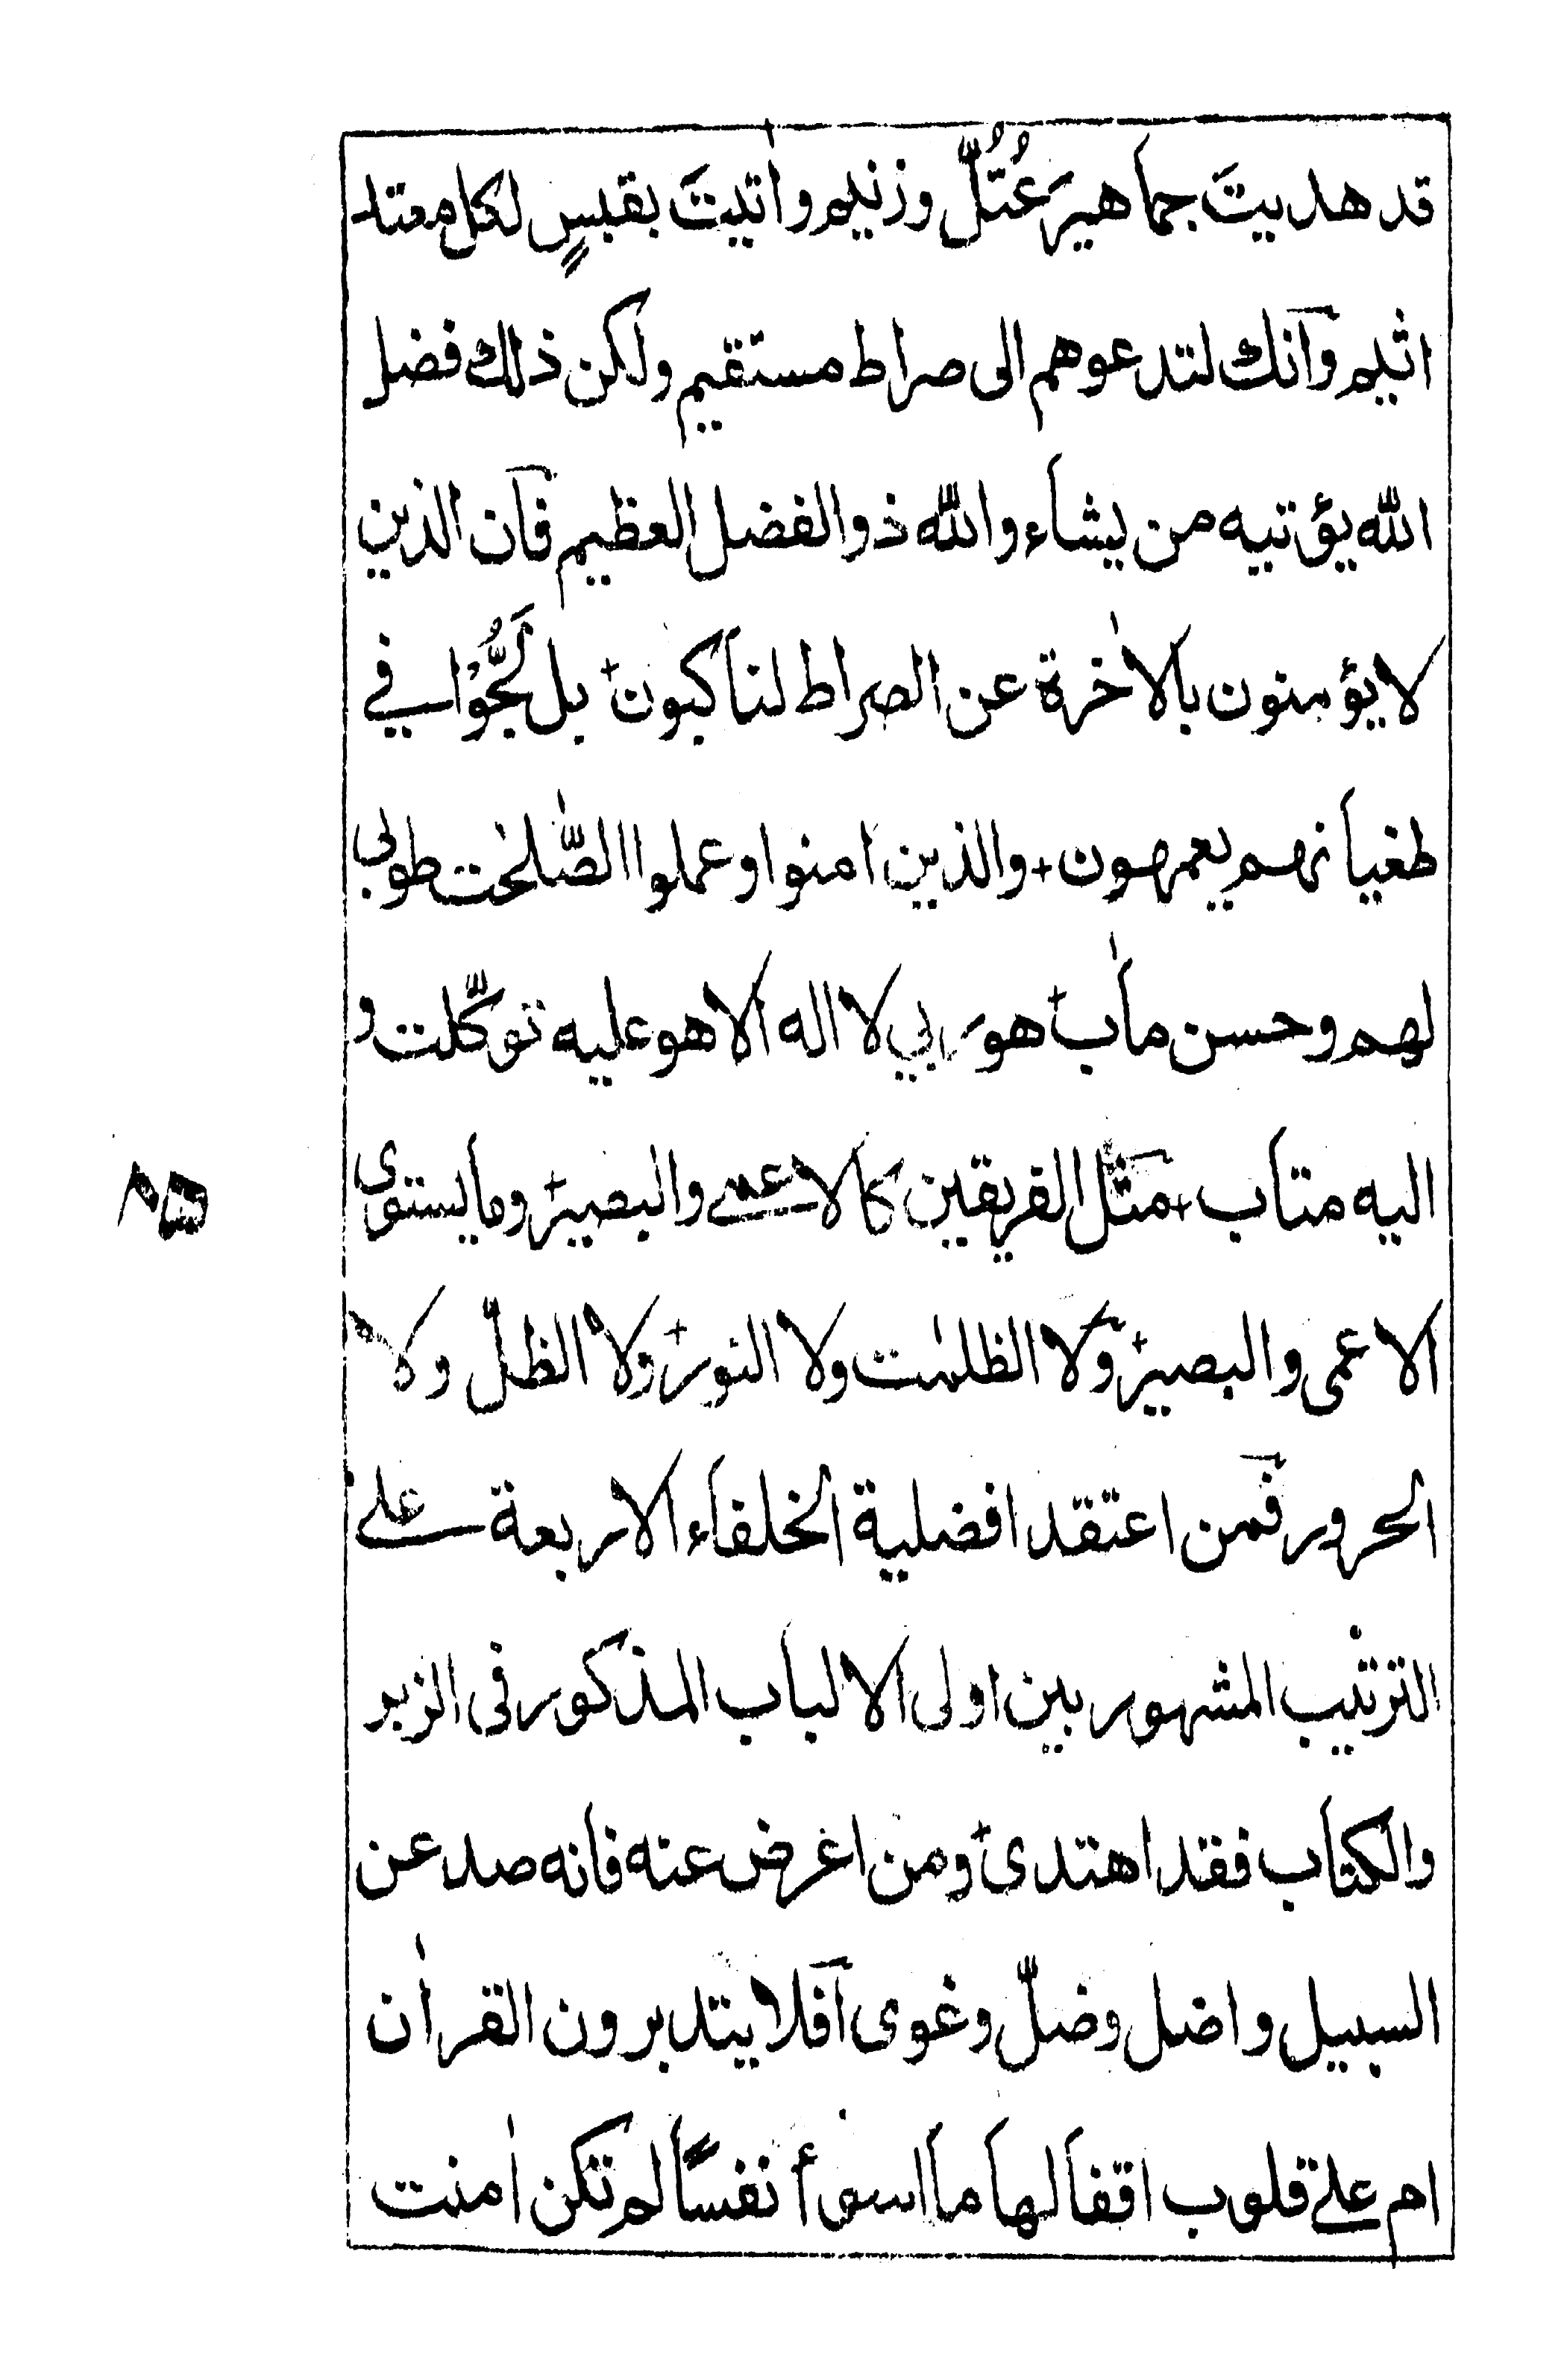 قد هديتَ جماهيرَ عُتُلّ وزنيم واٰتيتَ بقبسٍ لكل معتد
اثيم وآنك لتدعوهم الى صراط مستقيم ولكن ذلك فضل
الله يؤتيه من يشاء والله ذو الفضل العظيم فآن الذين
لا يؤمنون بالاٰخرة عن الصراط لناكبون+ بل لَجُّوْا في
طغيانهم يعمهون+ والذين اٰمنوا وعملوا الصّٰلحٰت طوبى
لهم وحسن ماٰب+ هو ربي لا اله الا هو عليه توكّلت و
اليه متاب+ مثل الفريقين كالاعمى والبصير+ وما يستوى
الاعمى والبصير+ ولا الظلمٰت ولا النور+ ولا الظلّ ولا
الحرور فمن اعتقد افضلية الخلفاء الاربعة على
الترتيب المشهور بين اولى الالباب المذكور فى الزبر
والكتاب فقد اهتدى+ ومن اعرض عنه فانه صد عن
السبيل واضل وضلّ وغوى آفلا يتدبرون القراٰن
ام على قلوب اقفالها ما اسوأ نفسًا لم تكن اٰمنت